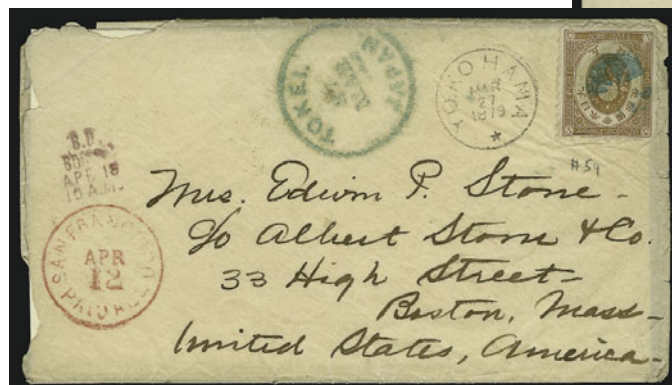 TOKEI
JAPAN
YOKOHAMA
MAR
27
1879
#51
APR 18
10 A.M.
SAN FRANCISCO
APR
12
PAID ALL
Mrs. Edwin P. Stone -
c/o Albert Stone & Co.
33 High Street -
Boston, Mass -
United States, America -